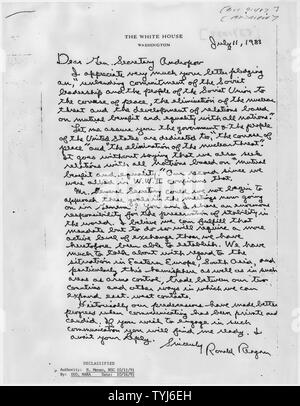 THE WHITE HOUSE
WASHINGTON
July 11, 1983
Dear Gen. Secretary Andropov
I appreciate very much your letter pledging
an "unbending commitment of the Soviet
leadership and the people of the Soviet Union to
the course of peace, the elimination of the nuclear
threat and the development of relations based
on mutual benefit and equality with all nations."
Let me assure you the government & the people
of the United States are dedicated to, "the course of
peace" and "the elimination of the nuclear threat."
It goes without saying that we also seek
relations with all nations based on "mutual
benefit and equality." Our record since we
were allied in W.W.II confirms that.
Mr. General Secretary could we not begin to
approach these goals in the meetings now going
on in Geneva? You and I share an enormous
responsibility for the preservation of stability in
the world. I believe we can fulfill that
mandate but to do so will require a more
active level of exchange than we have
heretofore been able to establish. We have
much to talk about with regard to the
situation in Eastern Europe, South Asia, and
particularly this hemisphere as well as in such
areas as arms control, trade between our two
countries and other ways in which we can
expand east-west contacts.
Historically our predecessors have made better
progress when communicating has been private and
candid. If you wish to engage in such
communication you will find me ready. I
await your reply.
Sincerely
Ronald Reagan
DECLASSIFIED
Authority:
By:
NARA
Date:
alamy
TYJ6EH